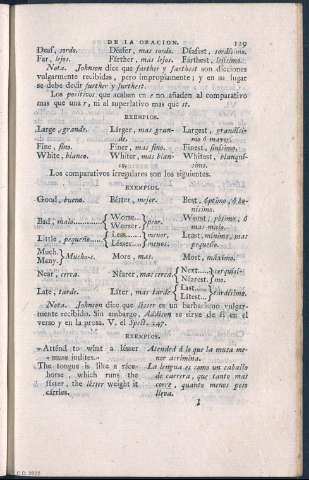 DE LA ORACION. 129
Deaf, sordo. Déafer, mas sordo. Déafest, sordísimo.
Far, lejos. Fárther, mas lejos. Fárthest, lejísimo.
Nota. Johnson dice que farther y farthest son dicciones
vulgarmente recibidas, pero impropiamente; y en su lugar
se debe decir further y furthest.
Los positivos que acaban en e no añaden al comparativo
mas que una r, ni al superlativo mas que st.
EXEMPLOS.
Large, grande. Lárger, mas grande. Largest, grandísimo ó mayor.
Fine, fino. Finer, mas fino. Finest, finísimo.
White, blanco. Whiter, mas blanco. Whitest, blanquísimo.
Los comparativos irregulares son los siguientes.
EXEMPLOS.
Good, bueno. Bétter, mejor. Best, óptimo, ó bonísimo.
Bad, malo. Worse. Worser. peor. Worst, pésimo, ó mas malo.
Little, pequeño. Less. Lésser. menor. menos. Least, mínimo, mas pequeño.
Much. Many. Mucho-s. More, mas. Most, máximo.
Near, cerca. Néarer, mas cerca. Next. Néarest. cerquísimo.
Late, tarde. Láter, mas tarde. Last. Látest. tardísimo.
Nota. Johnson dice que lésser es un barbarismo vulgarmente
recibido. Sin embargo, Addison se sirve de él en el
verso y en la prosa. V. el Spect. 247.
EXEMPLOS.
Atténd to what a lésser muse indítes. Atended á lo que la musa menor acrimina.
The tongue is like a race-horse, which runs the fáster, the lésser weight it cárries. La lengua es como un caballo de carrera, que tanto mas corre, quanto menos peso lleva.
I